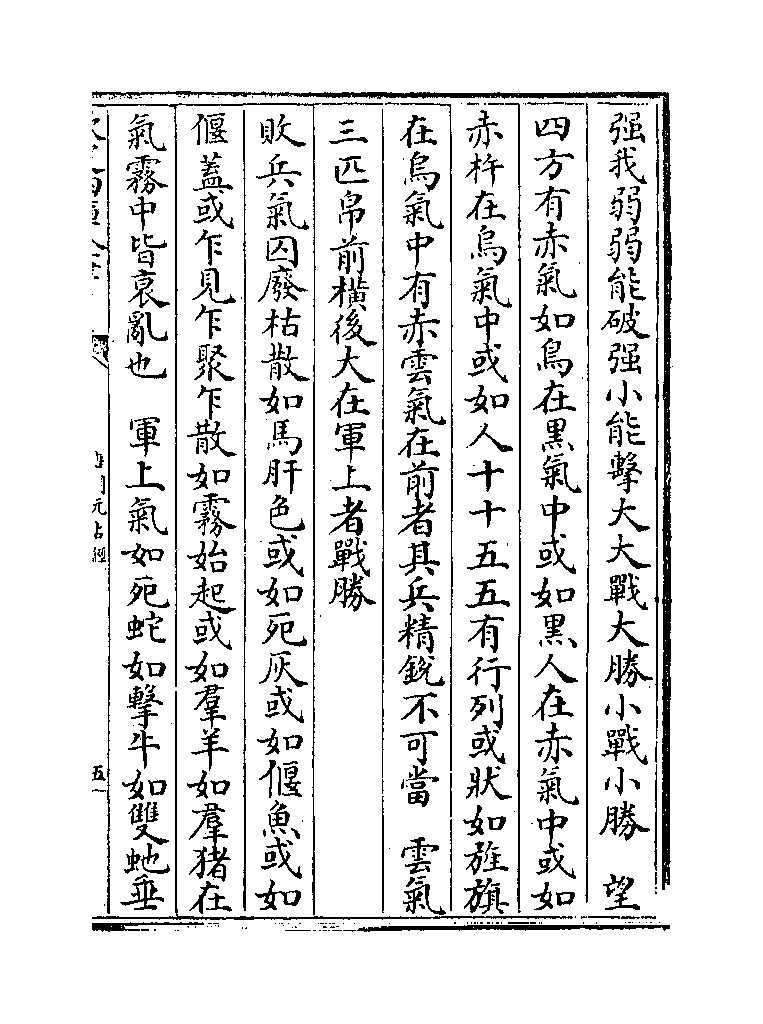 强我弱弱能破强小能擊大大戰大勝小戰小勝　望
四方有赤氣如鳥在黑氣中或如黑人在赤氣中或如
赤杵在烏氣中或如人十十五五有行列或狀如旌旗
在烏氣中有赤雲氣在前者其兵精銳不可當　雲氣
三匹帛前橫後大在軍上者戰勝
敗兵氣囚廢枯散如馬肝色或如死灰或如偃魚或如
偃蓋或乍見乍聚乍散如霧始起或如羣羊如羣猪在
氣霧中皆衰亂也　軍上氣如死蛇如擊牛如雙虵垂
元占經
五